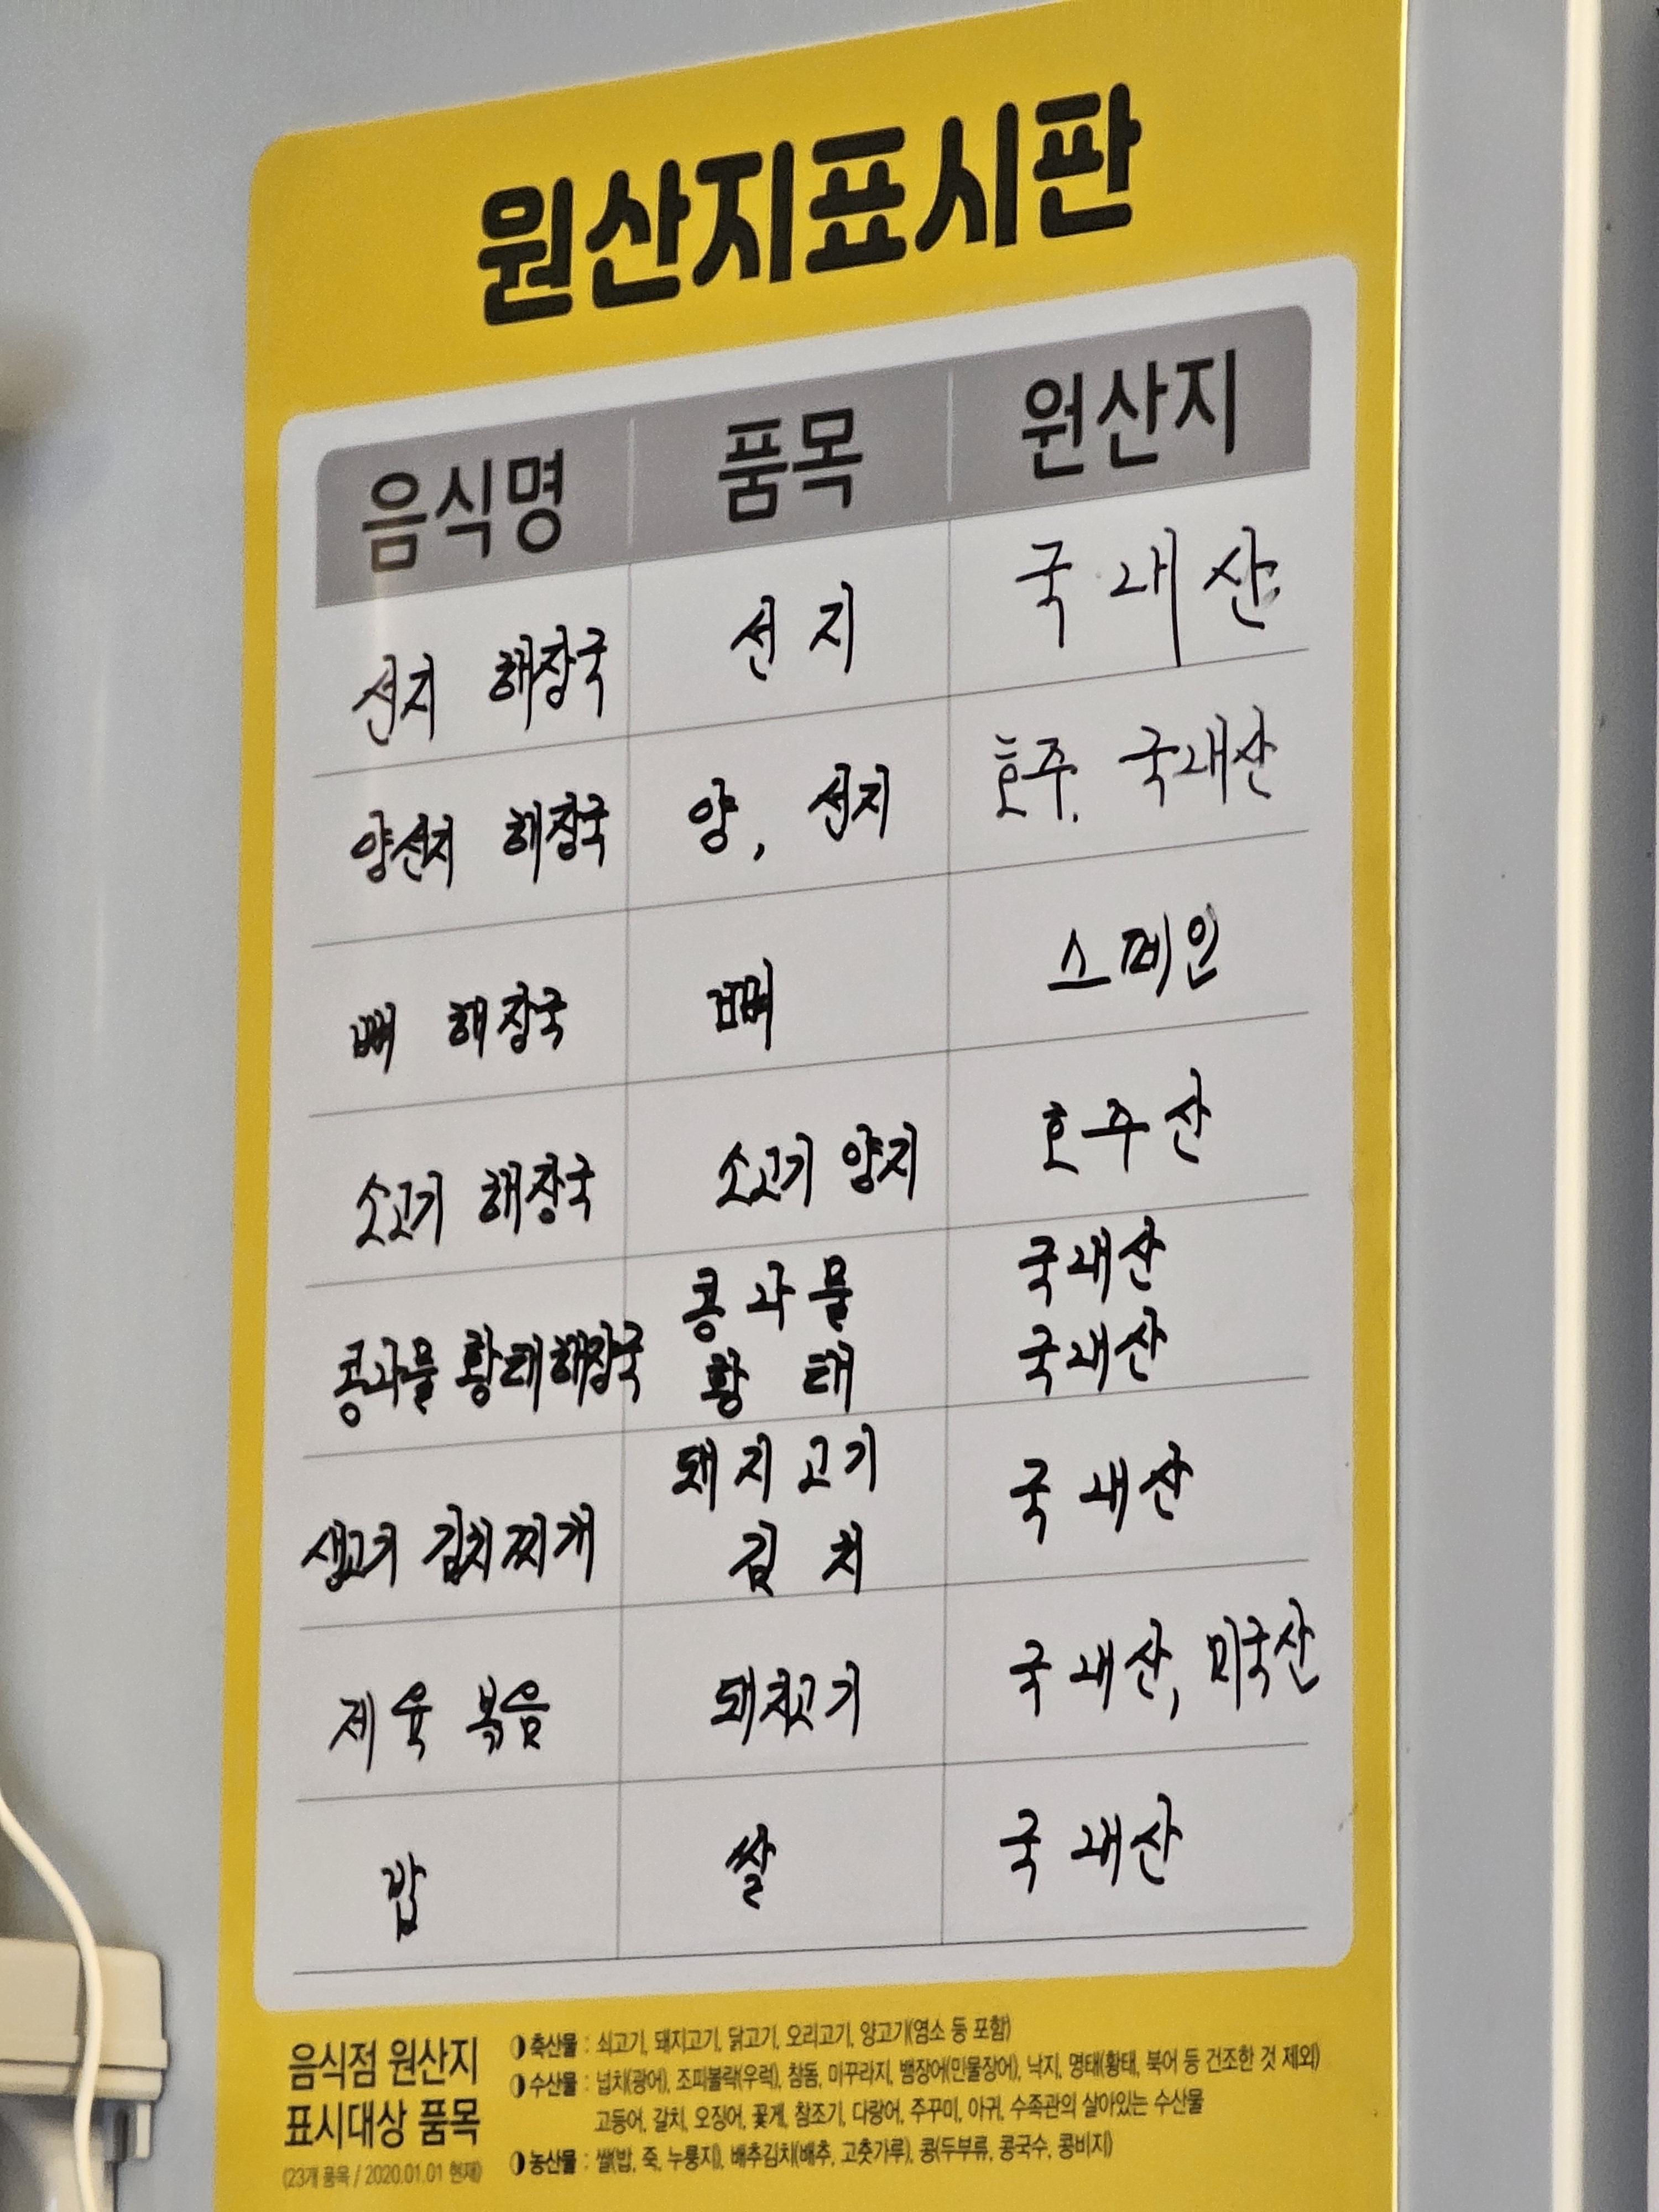 원산지표시판
음식명 품목 원산지
선지 해장국 선지 국내산
양선지 해장국 양, 선지 호주. 국내산
뼈 해장국 뼈 스페인
소고기 해장국 소고기 양지 호주산
콩나물 황태해장국 콩나물 국내산
황태 국내산
생고기 김치찌개 돼지고기 국내산
김치
제육 볶음 돼지고기 국내산, 미국산
밥 쌀 국내산
음식점 원산지
표시대상 품목
(23개 품목 / 2020.01.01 현재)
축산물 : 쇠고기, 돼지고기, 닭고기, 오리고기, 양고기(염소 등 포함)
수산물 : 넙치(광어), 조피볼락(우럭), 참돔, 미꾸라지, 뱀장어(민물장어), 낙지, 명태(황태, 북어 등 건조한 것 제외)
고등어, 갈치, 오징어, 꽃게, 참조기, 다랑어, 주꾸미, 아귀, 수족관의 살아있는 수산물
농산물 : 쌀(밥, 죽, 누룽지), 배추김치(배추, 고춧가루), 콩(두부류, 콩국수, 콩비지)